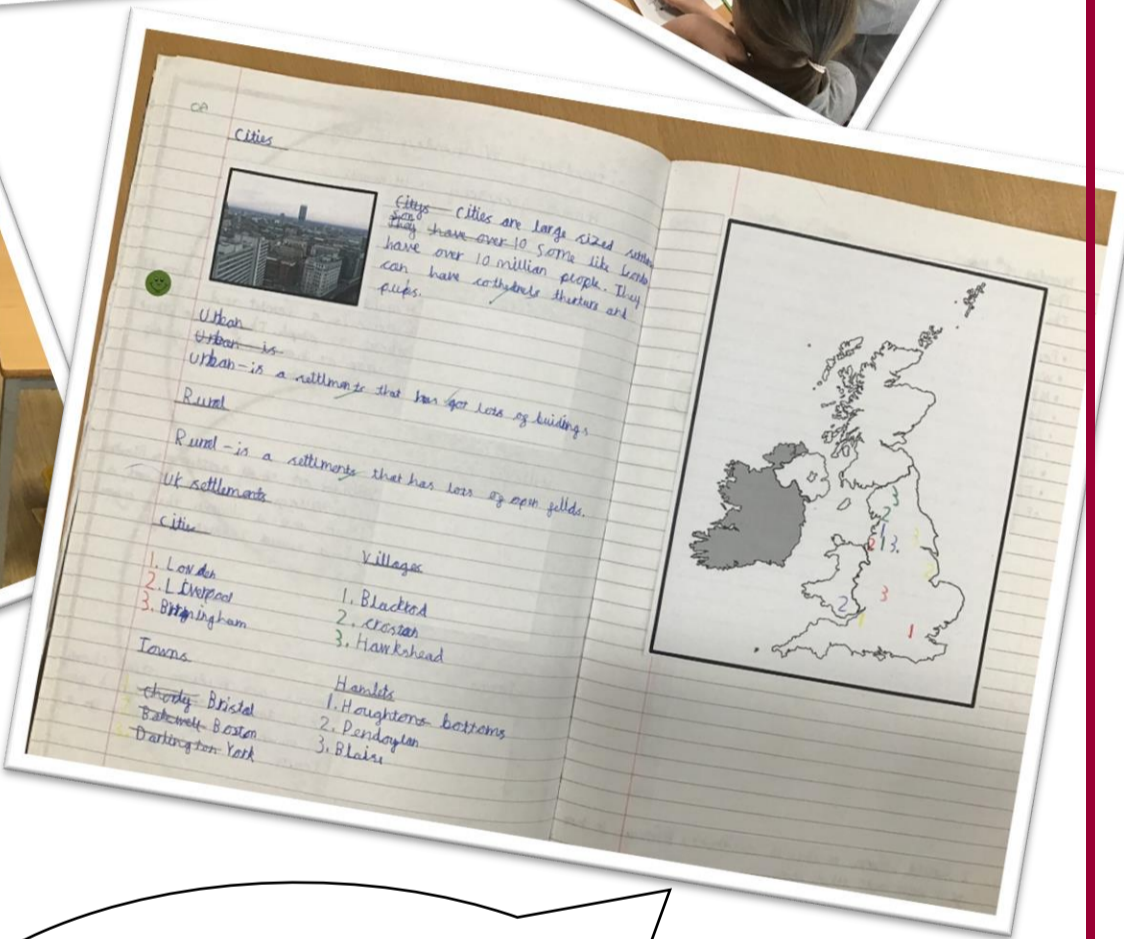 Cities
Citys cities are large sized settlem
they have over 10 some like Londo
have over 10 million people. They
can have cathedrals thieturs and
pubs.
Urban
Urban is
Urban - is a settlments that has got lots of buidings
Rural
Rural - is a settlments that has lots of open feilds.
UK settlements
Cities
1. London
2. Liverpool
3. Birmingham
Villages
1. Blackrod
2. croston
3. Hawkshead
Towns
Chorley Bristol
Bakewell Boston
Darlington York
Hamlets
1. Houghtons bottoms
2. Pendoylan
3. Blaise
3
2
1
2 1 3.
3
2
3
2
1
1